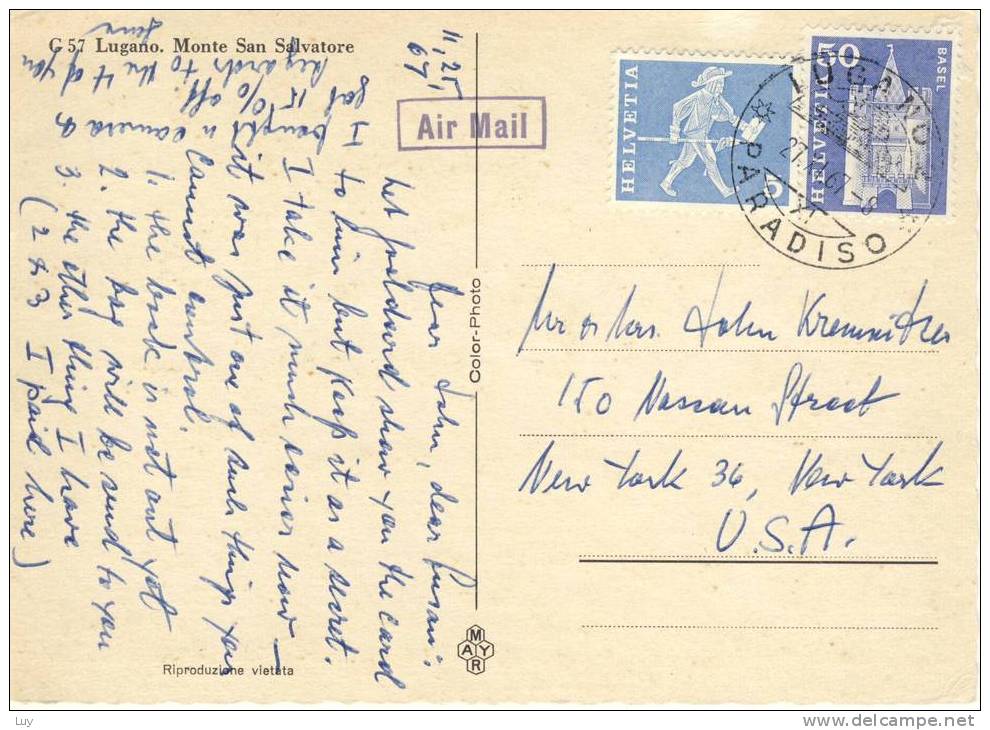 C 57 Lugano. Monte San Salvatore
Air Mail
HELVETIA
5
HELVETIA
50
BASEL
LUGANO
27.XI.67.-8
XI
PARADISO
11,25,
67
Dear John, dear Susan:
Let postcard show you the card
I to him but keep it as a secret.
I take it much easier now —
bought a camera
15% off.
it was just one of such things you
Cannot control.
1. the book is not out yet
2. the bag will be send to you
3. the other thing I have
(2 & 3 I paid here)
Regards to the 4 of you
Color-Photo
Mr or Mrs. John Kremnitzer
150 Nassau Street
New York 36, New York
U.S.A.
MAYR
Riproduzione vietata
Luy
delcampe.net